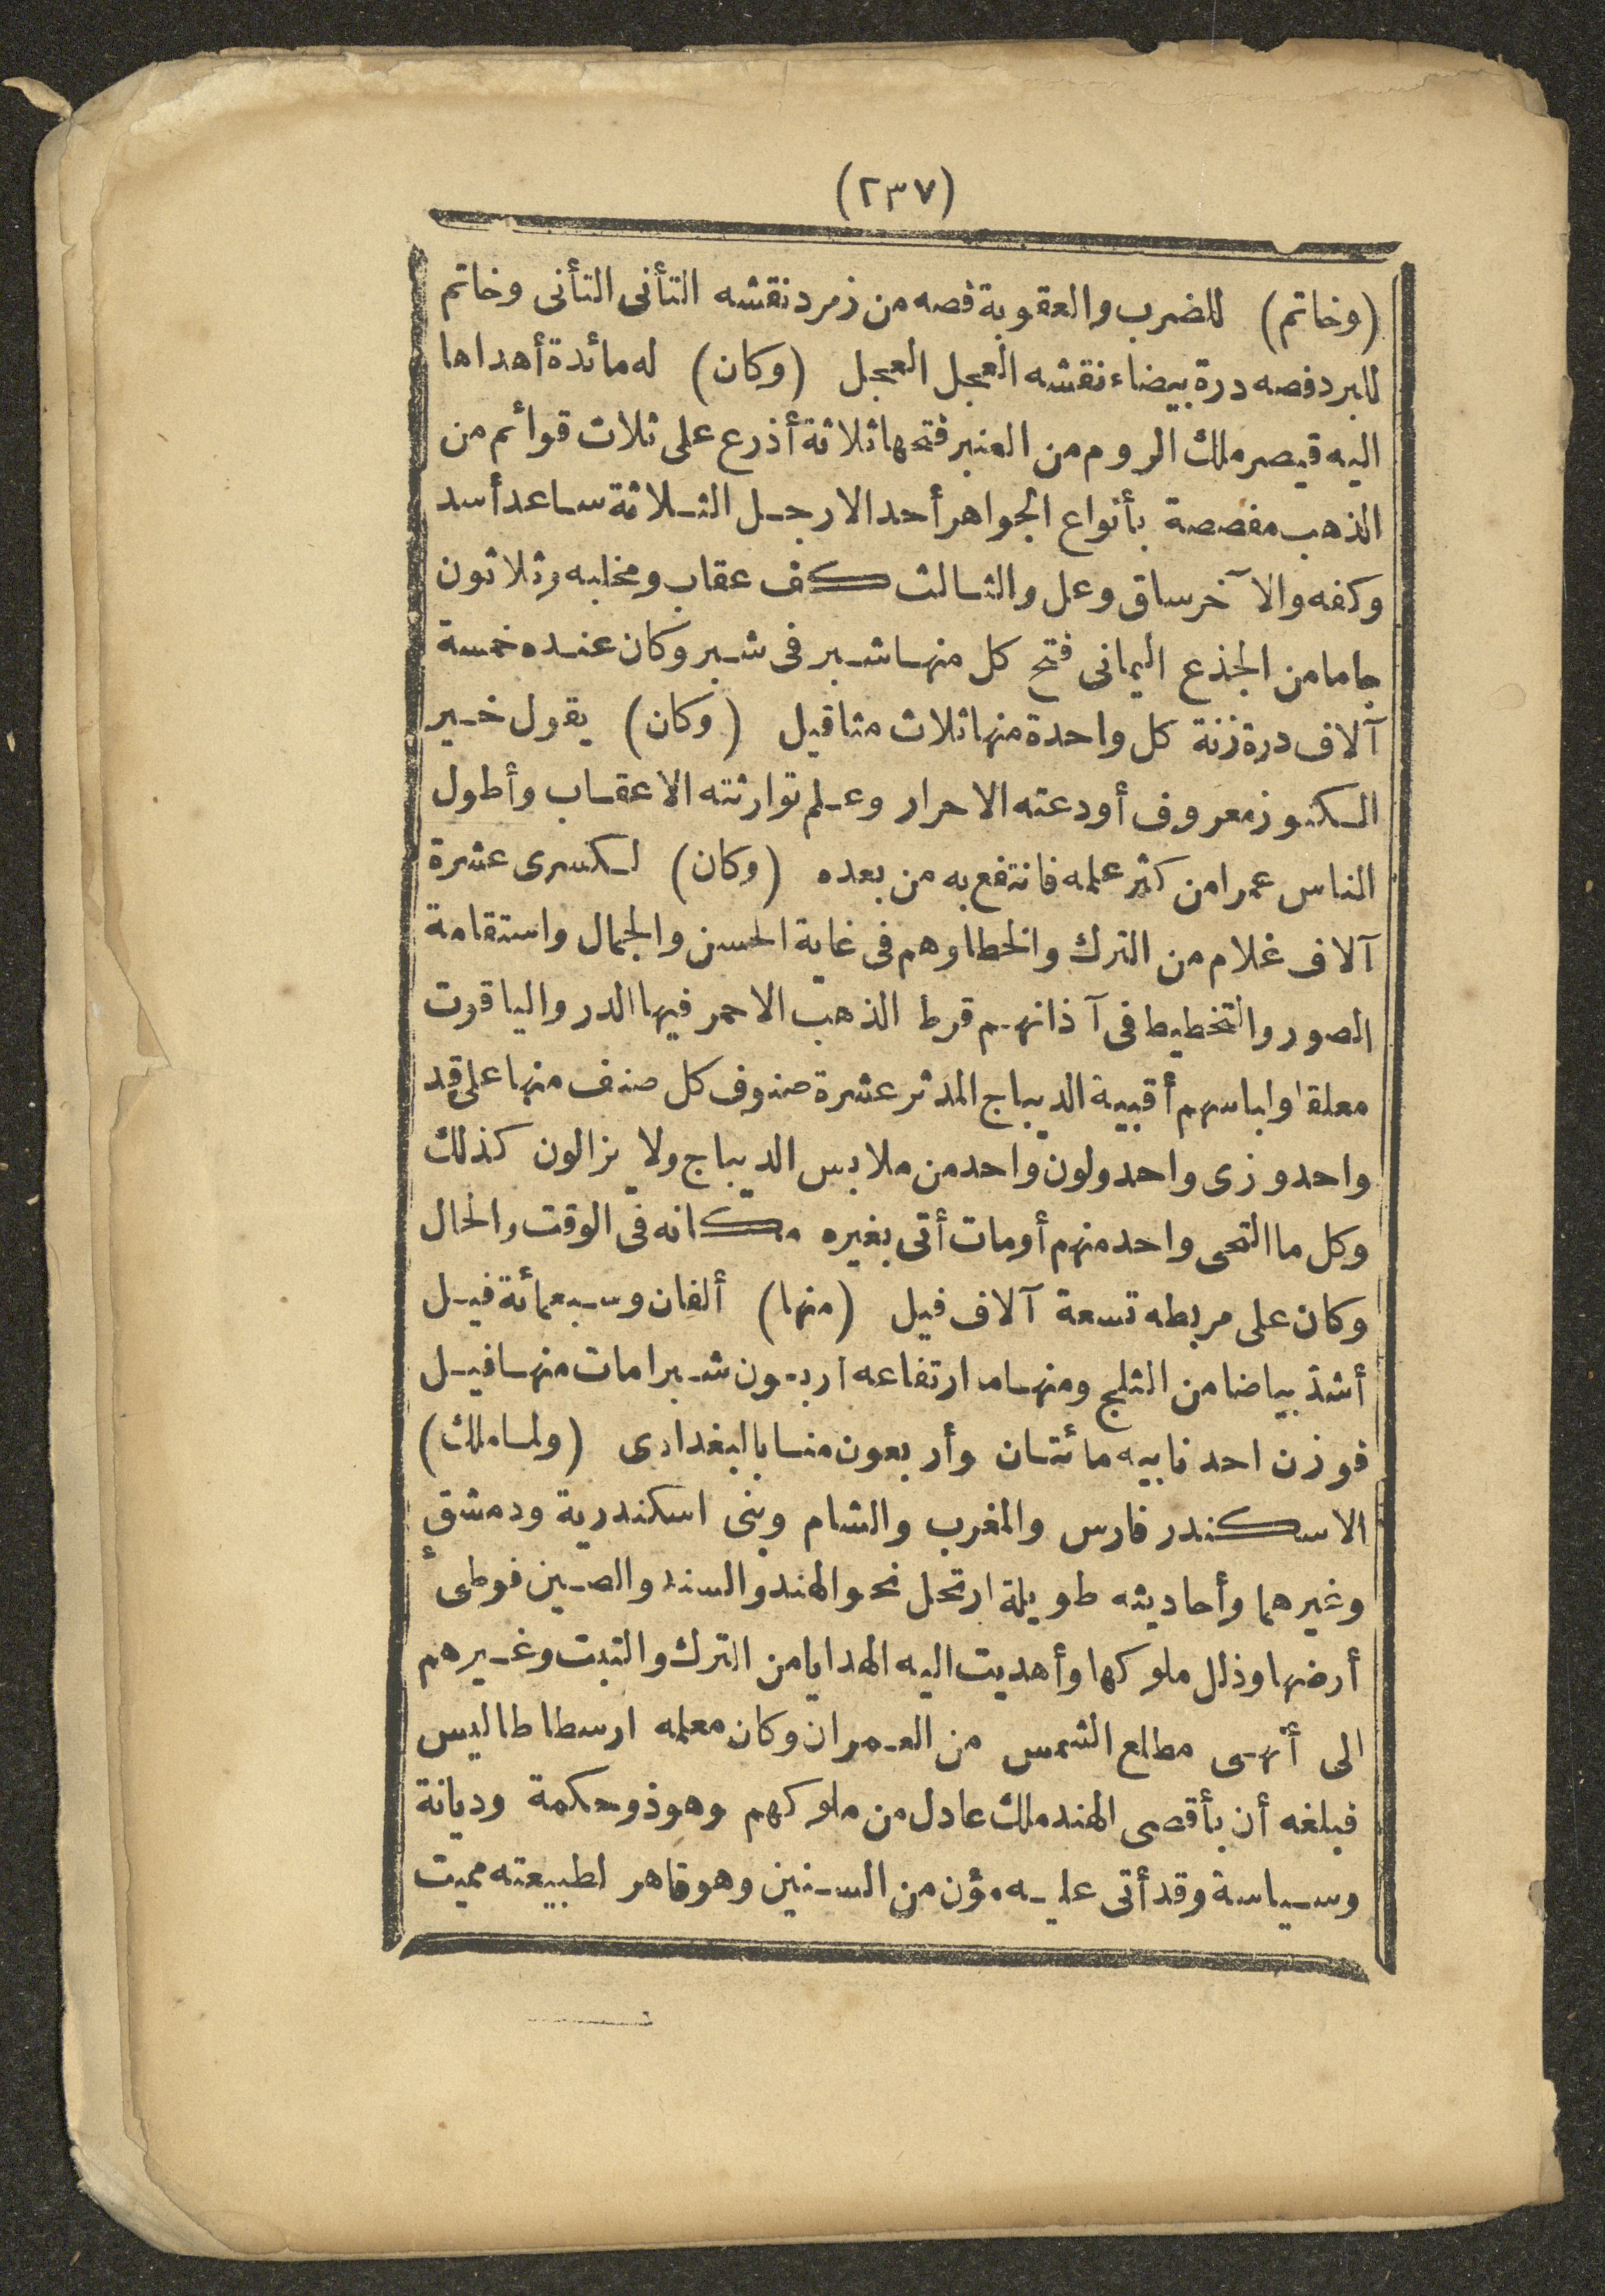 (٢٣٧)
(وخاتم) للضرب والعقوبة فصه من زمرد نقشه التأنى التأنى وخاتم
للبرد فصه درة بيضاء نقشه العجل العجل (وكان) له مائدة أهداها
اليه قيصر ملك الروم من العنبر فتحها ثلاثة أذرع على ثلاث قوائم من
الذهب مفصصة بأنواع الجواهر أحد الارجل الثلاثة ساعد أسد
وكفه والآخر ساق وعل والثالث كف عقاب ومخلبه وثلاثون
جاما من الجذع اليمانى فتح كل منها شبر فى شبر وكان عنده خمسة
آلاف درة زنة كل واحدة منها ثلاث مثاقيل (وكان) يقول خير
الكنوز معروف أودعته الاحرار وعلم توارثته الاعقاب وأطول
الناس عمرا من كثر علمه فانتفع به من بعده (وكان) لكسرى عشرة
آلاف غلام من الترك والخطا وهم فى غاية الحسن والجمال واستقامة
الصور والتخطيط فى آذانهم قرط الذهب الاحمر فيها الدر والياقوت
معلقا ولباسهم أقبية الديباج المدثر عشرة صنوف كل صنف منها على قد
واحد وزى واحد ولون واحد من ملابس الديباج ولا يزالون كذلك
وكل ما التحى واحد منهم أومات أتى بغيره مكانه فى الوقت والحال
وكان على مربطه تسعة آلاف فيل (منها) ألفان وسبعمائة فيل
أشد بياضا من الثلج ومنها ما ارتفاعه اربعون شبرا مات منها فيل
فوزن احد نابيه مائتان وأربعون منا بالبغدادى (ولما ملك)
الاسكندر فارس والمغرب والشام وبنى اسكندرية ودمشق
وغيرهما وأحاديثه طويلة ارتحل نحو الهند والسند والصين فوطئ
أرضها وذلل ملوكها وأهديت اليه الهدايا من الترك والتبت وغيرهم
الى أنهى مطلع الشمس من العمران وكان معلمه ارسطاطاليس
فبلغه أن بأقصى الهند ملك عادل من ملوكهم وهو ذو حكمة وديانة
وسياسة وقد أتى عليه مؤن من السنين وهو قاهر لطبيعته مميت